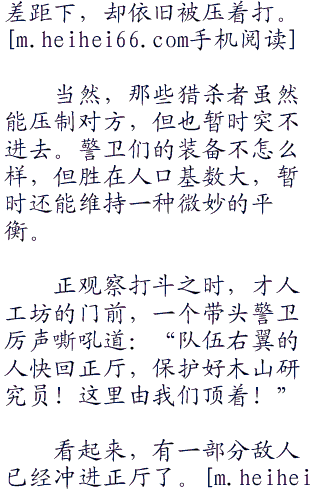 差距下，却依旧被压着打。
[m.heihei66.com手机阅读]
当然，那些猎杀者虽然
能压制对方，但也暂时突不
进去。警卫们的装备不怎么
样，但胜在人口基数大，暂
时还能维持一种微妙的平
衡。
正观察打斗之时，才人
工坊的门前，一个带头警卫
厉声嘶吼道：“队伍右翼的
人快回正厅，保护好木山研
究员！这里由我们顶着！”
看起来，有一部分敌人
已经冲进正厅了。[m.heihei